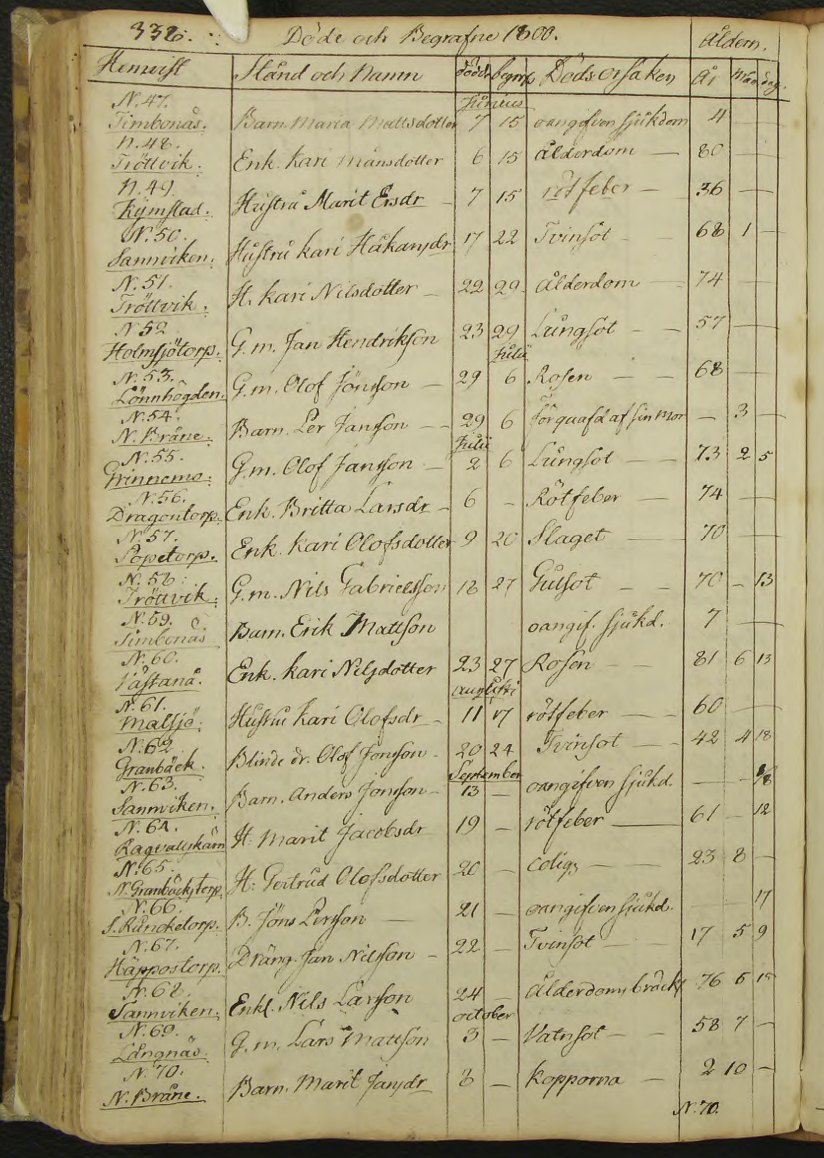 338. Döde och Begrafne 1800. Åldern.
Hemvist Stånd och Namn döde begrf Dödsorsaken År Mån dag.
N. 47. Junius
Timbonäs. Barn. Maria Mattsdotter 7 15 oangifven sjukdom 4 — —
N. 48.
Tröttvik. Enk. Kari Månsdotter 6 15 ålderdom — 80 — —
N. 49.
Kymstad. Hustru Marit Ersdr — 7 15 rötfeber — 36 — —
N. 50.
Sannviken. Hustru Kari Håkansdr 17 22 Tvinsot — 68 1 —
N. 51.
Tröttvik. H. Kari Nilsdotter — 22 29 ålderdom — 74 — —
N. 52
Holmsjötorp. G.m. Jan Hendrikson 23 29 Lungsot — — 57 — —
N. 53. Julii
Lönnhögden. G.m. Olof Jönsson — 29 6 Rosen — — 68 — —
N. 54.
N. Bråne. Barn. Per Jansson — 29 6 förqvafd af sin mor — 3 —
N. 55. Julii
Grinnemo. G.m. Olof Jansson — 2 6 Lungsot — — 73 2 5
N. 56.
Dragontorp. Enk. Britta Larsdr — 6 — Rötfeber — 74 — —
N. 57.
Popetorp. Enk. Kari Olofsdotter 9 20 Slaget — 70 — —
N. 58.
Tröttvik. G.m. Nils Gabrielsson 18 27 Gulsot — — 70 — 13
N. 59.
Timbonäs Barn. Erik Mattson oangif. sjukd. 7 —
N. 60.
Västanå. Enk. Kari Nilsdotter 23 27 Rosen — — 81 6 13
N. 61. Augusti
Malsjö. Hustru Kari Olofsdr — 11 17 rötfeber — — 60 —
N. 62
Granbäck. Blinde dr. Olof Jonsson — 20 24 Tvinsot — — 42 4 18
N. 63. September
Sannviken. Barn. Anders Jonsson — 13 — oangifven sjukd. — —
N. 64.
H. Marit Jacobsdr 19 — rötfeber — 61 — 12
N. 65.
N. Granbäckstorp. H. Gertrud Olofsdotter 20 — Colig — 23 8 —
N. 66.
S. Runcketorp. B. Jöns Persson 21 — oangifven sjukd. — — 17
N. 67.
Häppostorp. Dräng. Jan Nilsson — 22 — Tvinsot — 17 5 9
N. 68.
Sannviken. Enkl. Nils Larsson 24 — Ålderdoms bräckl 76 6
N. 69. October
Långnäs. G.m. Lars Mattson 3 — Vatnsot — — 58 7 —
N. 70.
N. Bråne. Barn. Marit Jansdr 8 — Kopporna — 2 10 —
N. 70.